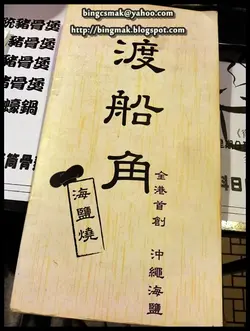 bingcsmak@yahoo.com
http://bingmak.blogspot.com
渡船角
海鹽燒
全港首創 沖繩海鹽
豬骨煲
豬骨煲
豬骨煲
蠔鍋
筒骨